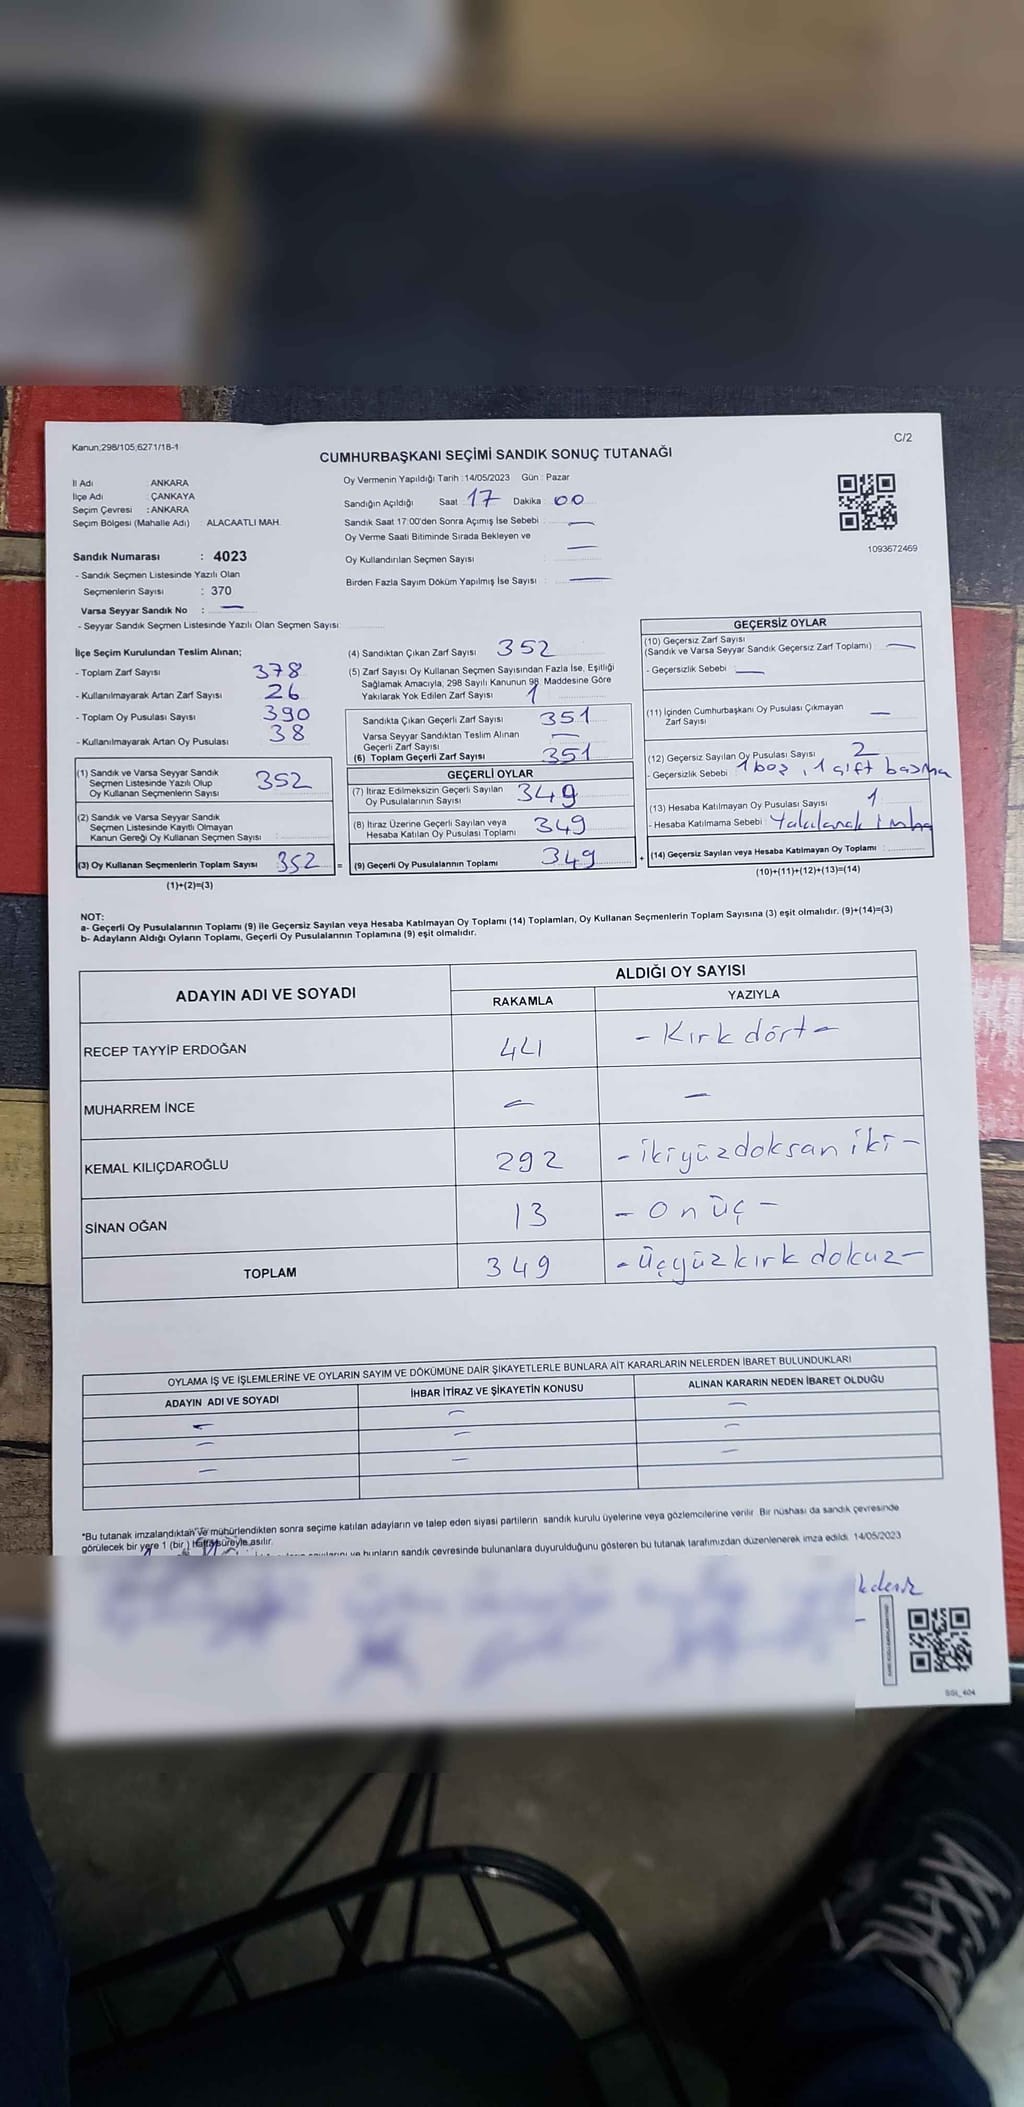 Kanun,298/105,6271/18-1
C/2
CUMHURBAŞKANI SEÇİMİ SANDIK SONUÇ TUTANAĞI
İl Adı : ANKARA
İlçe Adı : ÇANKAYA
Seçim Çevresi : ANKARA
Seçim Bölgesi (Mahalle Adı) ALACAATLI MAH.
Sandık Numarası : 4023
- Sandık Seçmen Listesinde Yazılı Olan
Seçmenlerin Sayısı : 370
Varsa Seyyar Sandık No : —
- Seyyar Sandık Seçmen Listesinde Yazılı Olan Seçmen Sayısı:
Oy Vermenin Yapıldığı Tarih :14/05/2023 Gün : Pazar
Sandığın Açıldığı Saat 17 Dakika 00
Sandık Saat 17:00'den Sonra Açımış İse Sebebi : —
Oy Verme Saati Bitiminde Sırada Bekleyen ve
Oy Kullandırılan Seçmen Sayısı : —
Birden Fazla Sayım Döküm Yapılmış İse Sayısı : —
1093672469
İlçe Seçim Kurulundan Teslim Alınan;
- Toplam Zarf Sayısı 378
- Kullanılmayarak Artan Zarf Sayısı 26
- Toplam Oy Pusulası Sayısı 390
- Kullanılmayarak Artan Oy Pusulası 38
(1) Sandık ve Varsa Seyyar Sandık
Seçmen Listesinde Yazılı Olup
Oy Kullanan Seçmenlerin Sayısı 352
(2) Sandık ve Varsa Seyyar Sandık
Seçmen Listesinde Kayıtlı Olmayan
Kanun Gereği Oy Kullanan Seçmen Sayısı :
(3) Oy Kullanan Seçmenlerin Toplam Sayısı 352 =
(1)+(2)=(3)
(4) Sandıktan Çıkan Zarf Sayısı 352
(5) Zarf Sayısı Oy Kullanan Seçmen Sayısından Fazla İse, Eşitliği
Sağlamak Amacıyla, 298 Sayılı Kanunun 98. Maddesine Göre
Yakılarak Yok Edilen Zarf Sayısı 1
Sandıkta Çıkan Geçerli Zarf Sayısı 351
Varsa Seyyar Sandıktan Teslim Alınan
Geçerli Zarf Sayısı —
(6) Toplam Geçerli Zarf Sayısı 351
GEÇERLİ OYLAR
(7) İtiraz Edilmeksizin Geçerli Sayılan
Oy Pusulalarının Sayısı 349
(8) İtiraz Üzerine Geçerli Sayılan veya
Hesaba Katılan Oy Pusulası Toplamı 349
(9) Geçerli Oy Pusulalarının Toplamı 349 +
GEÇERSİZ OYLAR
(10) Geçersiz Zarf Sayısı
(Sandık ve Varsa Seyyar Sandık Geçersiz Zarf Toplamı) —
- Geçersizlik Sebebi : —
(11) İçinden Cumhurbaşkanı Oy Pusulası Çıkmayan
Zarf Sayısı —
(12) Geçersiz Sayılan Oy Pusulası Sayısı 2
- Geçersizlik Sebebi : 1 boş, 1 çift basma
(13) Hesaba Katılmayan Oy Pusulası Sayısı 1
- Hesaba Katılmama Sebebi : Yakılarak imha
(14) Geçersiz Sayılan veya Hesaba Katılmayan Oy Toplamı :
(10)+(11)+(12)+(13)=(14)
NOT:
a- Geçerli Oy Pusulalarının Toplamı (9) ile Geçersiz Sayılan veya Hesaba Katılmayan Oy Toplamı (14) Toplamları, Oy Kullanan Seçmenlerin Toplam Sayısına (3) eşit olmalıdır. (9)+(14)=(3)
b- Adayların Aldığı Oyların Toplamı, Geçerli Oy Pusulalarının Toplamına (9) eşit olmalıdır.
ADAYIN ADI VE SOYADI
ALDIĞI OY SAYISI
RAKAMLA YAZIYLA
RECEP TAYYİP ERDOĞAN 44 - Kırk dört -
MUHARREM İNCE — —
KEMAL KILIÇDAROĞLU 292 - ikiyüzdoksan iki -
SİNAN OĞAN 13 - On üç -
TOPLAM 349 - üçyüzkırk dokuz -
OYLAMA İŞ VE İŞLEMLERİNE VE OYLARIN SAYIM VE DÖKÜMÜNE DAİR ŞİKAYETLERLE BUNLARA AİT KARARLARIN NELERDEN İBARET BULUNDUKLARI
ADAYIN ADI VE SOYADI İHBAR İTİRAZ VE ŞİKAYETİN KONUSU ALINAN KARARIN NEDEN İBARET OLDUĞU
— — —
— — —
— — —
*Bu tutanak imzalandıktan ve mühürlendikten sonra seçime katılan adayların ve talep eden siyasi partilerin sandık kurulu üyelerine veya gözlemcilerine verilir. Bir nüshası da sandık çevresinde
görülecek bir yere 1 (bir) hafta süreyle asılır.
ve bunların sandık çevresinde bulunanlara duyurulduğunu gösteren bu tutanak tarafımızdan düzenlenerek imza edildi. 14/05/2023